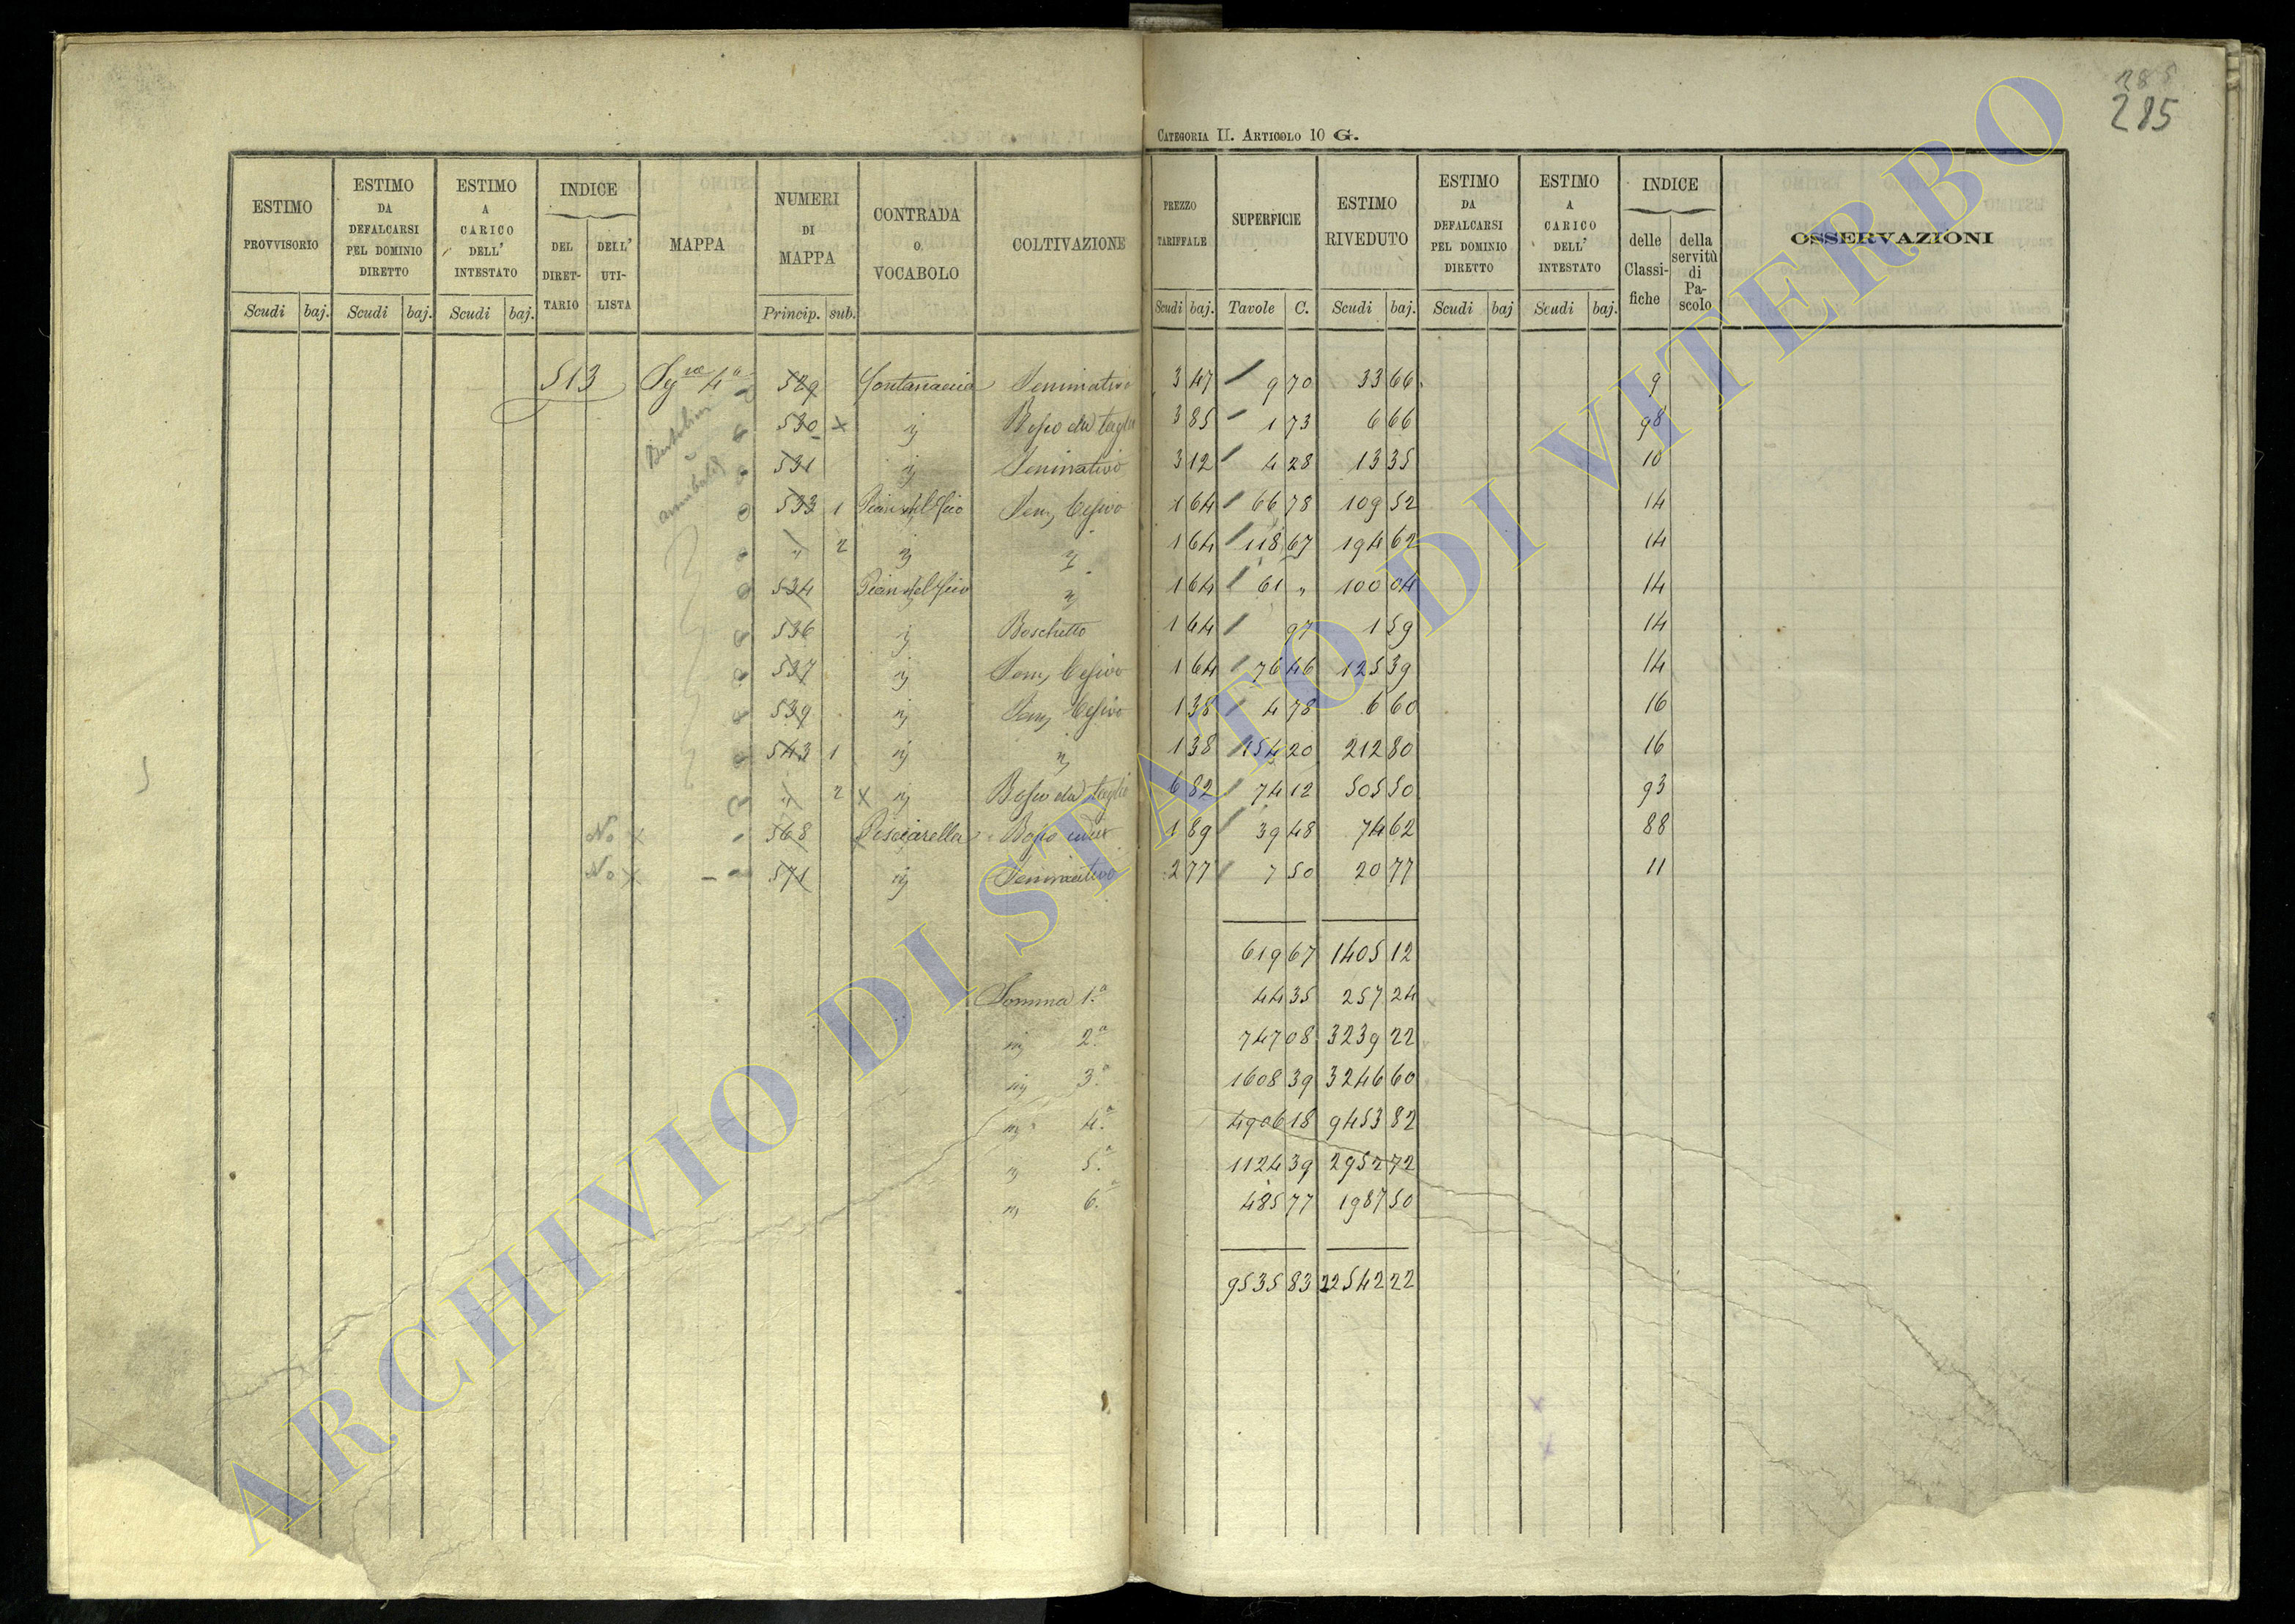 285
285
CATEGORIA II. ARTICOLO 10 G.
ESTIMO PROVVISORIO Scudi baj.
ESTIMO DA DEFALCARSI PEL DOMINIO DIRETTO Scudi baj.
ESTIMO A CARICO DELL' INTESTATO Scudi baj.
INDICE DEL DIRETTARIO DELL' UTILISTA
MAPPA
NUMERI DI MAPPA Princip. sub.
CONTRADA O VOCABOLO
COLTIVAZIONE
PREZZO TARIFFALE Scudi baj.
SUPERFICIE Tavole C.
ESTIMO RIVEDUTO Scudi baj.
ESTIMO DA DEFALCARSI PEL DOMINIO DIRETTO Scudi baj
ESTIMO A CARICO DELL' INTESTATO Scudi baj.
INDICE delle Classifiche della servitù di Pascolo
OSSERVAZIONI
513 4a 529 Fontanaccio Seminativo 3 47 9 70 33 66 9
530 x " Bosco da taglio 3 85 1 73 6 66 98
531 " Seminativo 3 12 4 28 13 35 10
533 1 Pian del fico Sem Cesivo 1 64 66 78 109 52 14
" 2 " " 1 64 118 67 194 62 14
534 Pian del fico " 1 64 61 " 100 04 14
536 " Boschetto 1 64 97 1 59 14
537 " Sem Cesivo 1 64 76 46 125 39 14
539 " Sem Cesivo 1 38 4 78 6 60 16
543 1 " " 1 38 154 20 212 80 16
" 2 x " Bosco da taglio 6 82 74 12 505 50 93
No x 568 Pesciarella 1 89 39 48 74 62 88
No x 571 " Seminativo 2 77 7 50 20 77 11
619 67 1405 12
Somma 1.a 44 35 257 24
" 2.a 747 08 3239 22
" 3.a 1608 39 3246 60
" 4.a 4906 18 9453 82
" 5.a 1124 39 2952 72
" 6.a 485 77 1987 50
9535 83 22542 22
ARCHIVIO DI STATO DI VITERBO